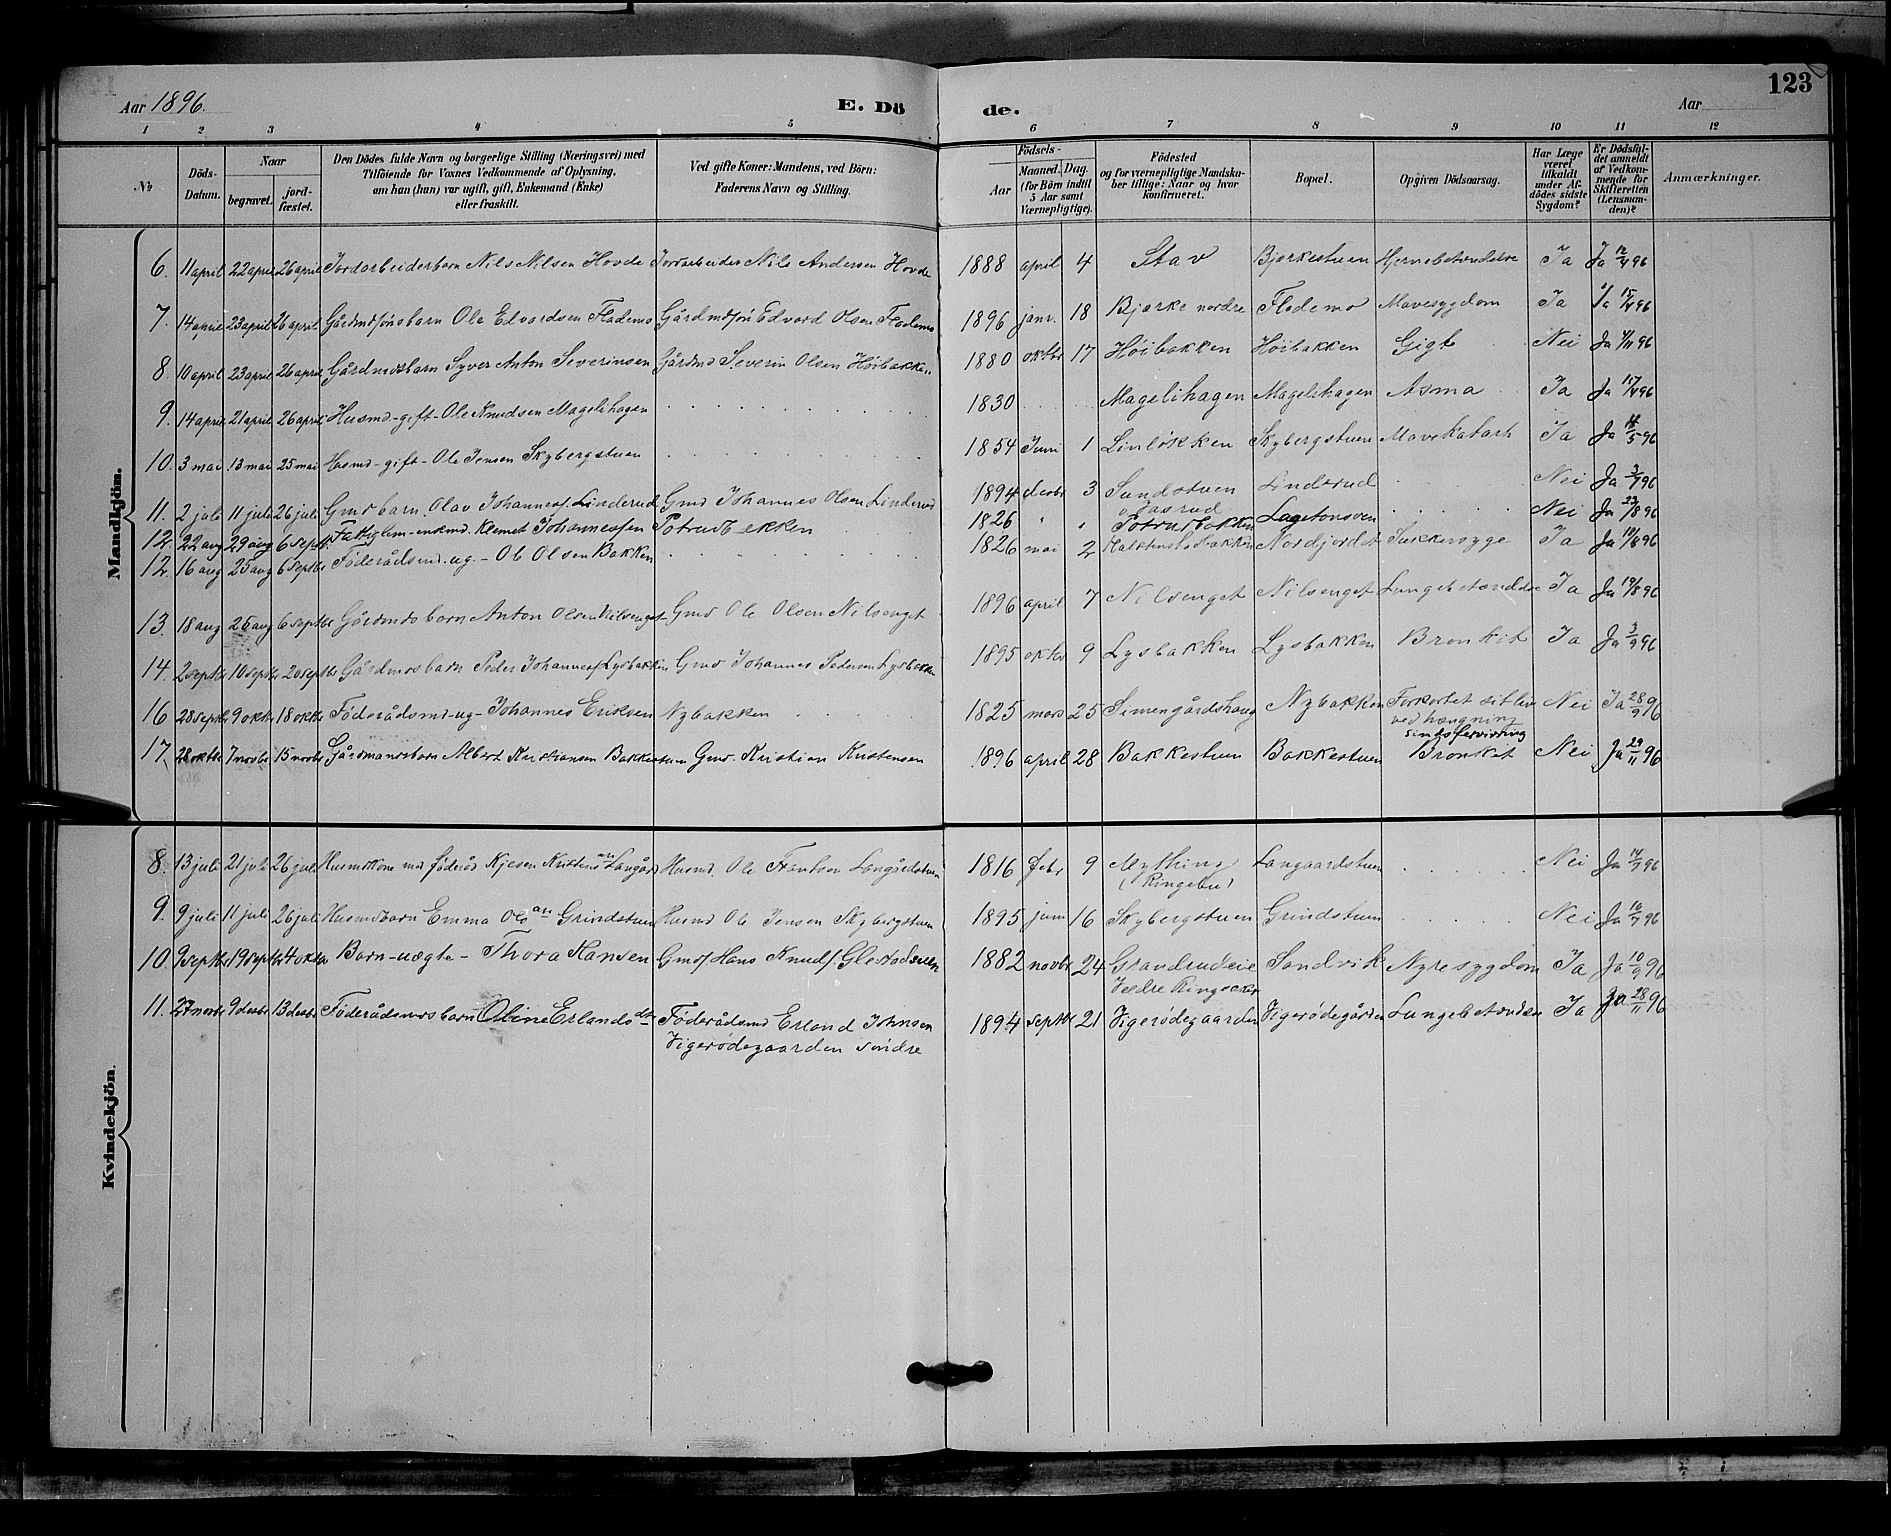 Aar 1896. E. Dö de. Aar 123
1 2 3 4 5 6 7 8 9 10 11 12
№ Döds-Datum. Naar begravet. jordfæstet. Den Dödes fulde Navn og borgerlige Stilling (Næringsvei) med Tilföiende for Voxnes Vedkommende af Oplysning, om han (hun) var ugift, gift, Enkemand (Enke) eller fraskilt. Ved gifte Koner: Mandens, ved Børn: Faderens Navn og Stilling. Födsels- Aar Maaned. Dag. (for Börn indtil 5 Aar samt Værnepligtige). Födested og for værnepligtige Mandskaber tillige: Naar og hvor konfirmeret. Bopæl. Opgiven Dödsaarsag. Har Læge været tilkaldt under Afdödes sidste Sygdom? Er Dödsfaldet anmeldt af Vedkommende for Skifteretten (Lensmanden)? Anmærkninger.
Mandkjön.
6. 11 april 22 april 26 april Jordarbeiderbarn Nils Nilsen Hovde Jordarbeider Nils Andersen Hovde 1888 april 4 Stav Bjerkestuen Hjernebetændelse Ja Ja 12/4 96
7. 14 april 23 april 26 april Ole Edvardsen Flademo Edvard Olsen Flademo 1896 janr. 18 Bjerke nordre Flademo Mavesygdom Ja Ja 15/4 96
8. 10 april 23 april 26 april Gårdmdsbarn Syver Anton Severinsen Gårdmd Severin Olsen Höibakken 1880 oktbr 17 Höibakken Höibakken Gigt Nei Ja 96
9. 14 april 21 april 26 april Husmd - gift - Ole Knudsen Magelihagen 1830 Magelihagen Magelihagen Asma Ja Ja 15/4 96
10. 3 mai 13 mai 25 mai Husmd - gift - Ole Jensen Skybergstuen 1854 Juni 1 Linløkken Skybergstuen Mavekatarh Ja Ja /5 96
11. 2 juli 11 juli 26 juli Gmdbarn Olav Johannesf. Linderud Gmd Johannes Olsen Linderud 1894 desbr 3 Sundstuen Linderud Nei Ja 3/7 96
12. 22 aug 29 aug 6 septbr. Fattiglem - enkmd. Klemet Johannessen Potrudbakken 1826 " " Potrudbakken Nei Ja 22/8 96
12. 16 aug 25 aug 6 septbr Föderådsmd. ug. - Ole Olsen Bakken 1826 mai 2 Nordjordet Sukkersyge Ja Ja 96
13. 18 aug 26 aug 6 septbr Gårdmdsbarn Anton Olsen Nilsenget Gmd Ole Olsen Nilsenget 1896 april 7 Nilsenget Nilsenget Lungebetændelse Ja Ja 19/8 96
14. 2 septbr 10 septbr 20 septbr Gårdmdsbarn Peder Johannesf Lysbakken Gmd Johannes Pedersen Lysbakken 1895 oktbr 9 Lysbakken Lysbakken Bronkit Ja Ja 3/9 96
16 28 septbr 9 oktbr 18 oktbr Föderådsmd - ug - Johannes Eriksen Nybakken 1825 mars 25 Simengårdshaug Nybakken Forkortet sit liv Nei Ja 28/9 96
ved hængning
sindsforvirring
17. 28 oktbr 7 novbr 15 novbr Gårdmandsbarn Albert Kristiansen Bakkestuen Gmd. Kristian Kristensen 1896 april 28 Bakkestuen Bakkestuen Bronkit Nei Ja 29/11 96
Kvindekjön.
8. 13 juli 21 juli 26 juli Husmdskone md föderåd Husmd. Ole Frantsen Langårdstuen 1816 febr 9 Mything Langaardstuen Nei Ja 14/7 96
(Ringebu)
9. 9 juli 11 juli 26 juli Husmdsbarn Emma Olsan Grindstuen Husmd Ole Jensen Skybergstuen 1895 juni 16 Skybergstuen Grindstuen Nei Ja 10/7 96
10. 9 septbr 19 septbr 4 oktbr Barn - uægte - Thora Hansen Gmds/ Hans Knudf. Glestadsveen 1882 novbr 24 Grandrudeie Sandvik Nyresygdom Ja Ja 10/9 96
Veldre Ringsaker
11. 27 novbr 9 desbr 13 desbr Föderådsmdsbarn Oline Erlandsdtr Föderådsmd Erland Johnsen 1894 septbr 21 Vigerödegaarden Vigerödegården Lungebetændelse Ja Ja 28/11 96
Vigerödegaarden söndre